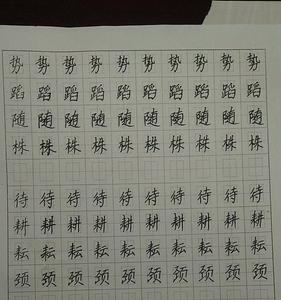 势势势势势势势势势势
蹈蹈蹈蹈蹈蹈蹈蹈蹈蹈
随随随随随随随随随随
株株株株株株株株株株
待待待待待待待待待待
耕耕耕耕耕耕耕耕耕耕
耘耘耘耘耘耘耘耘耘耘
颈颈颈颈颈颈颈颈颈颈